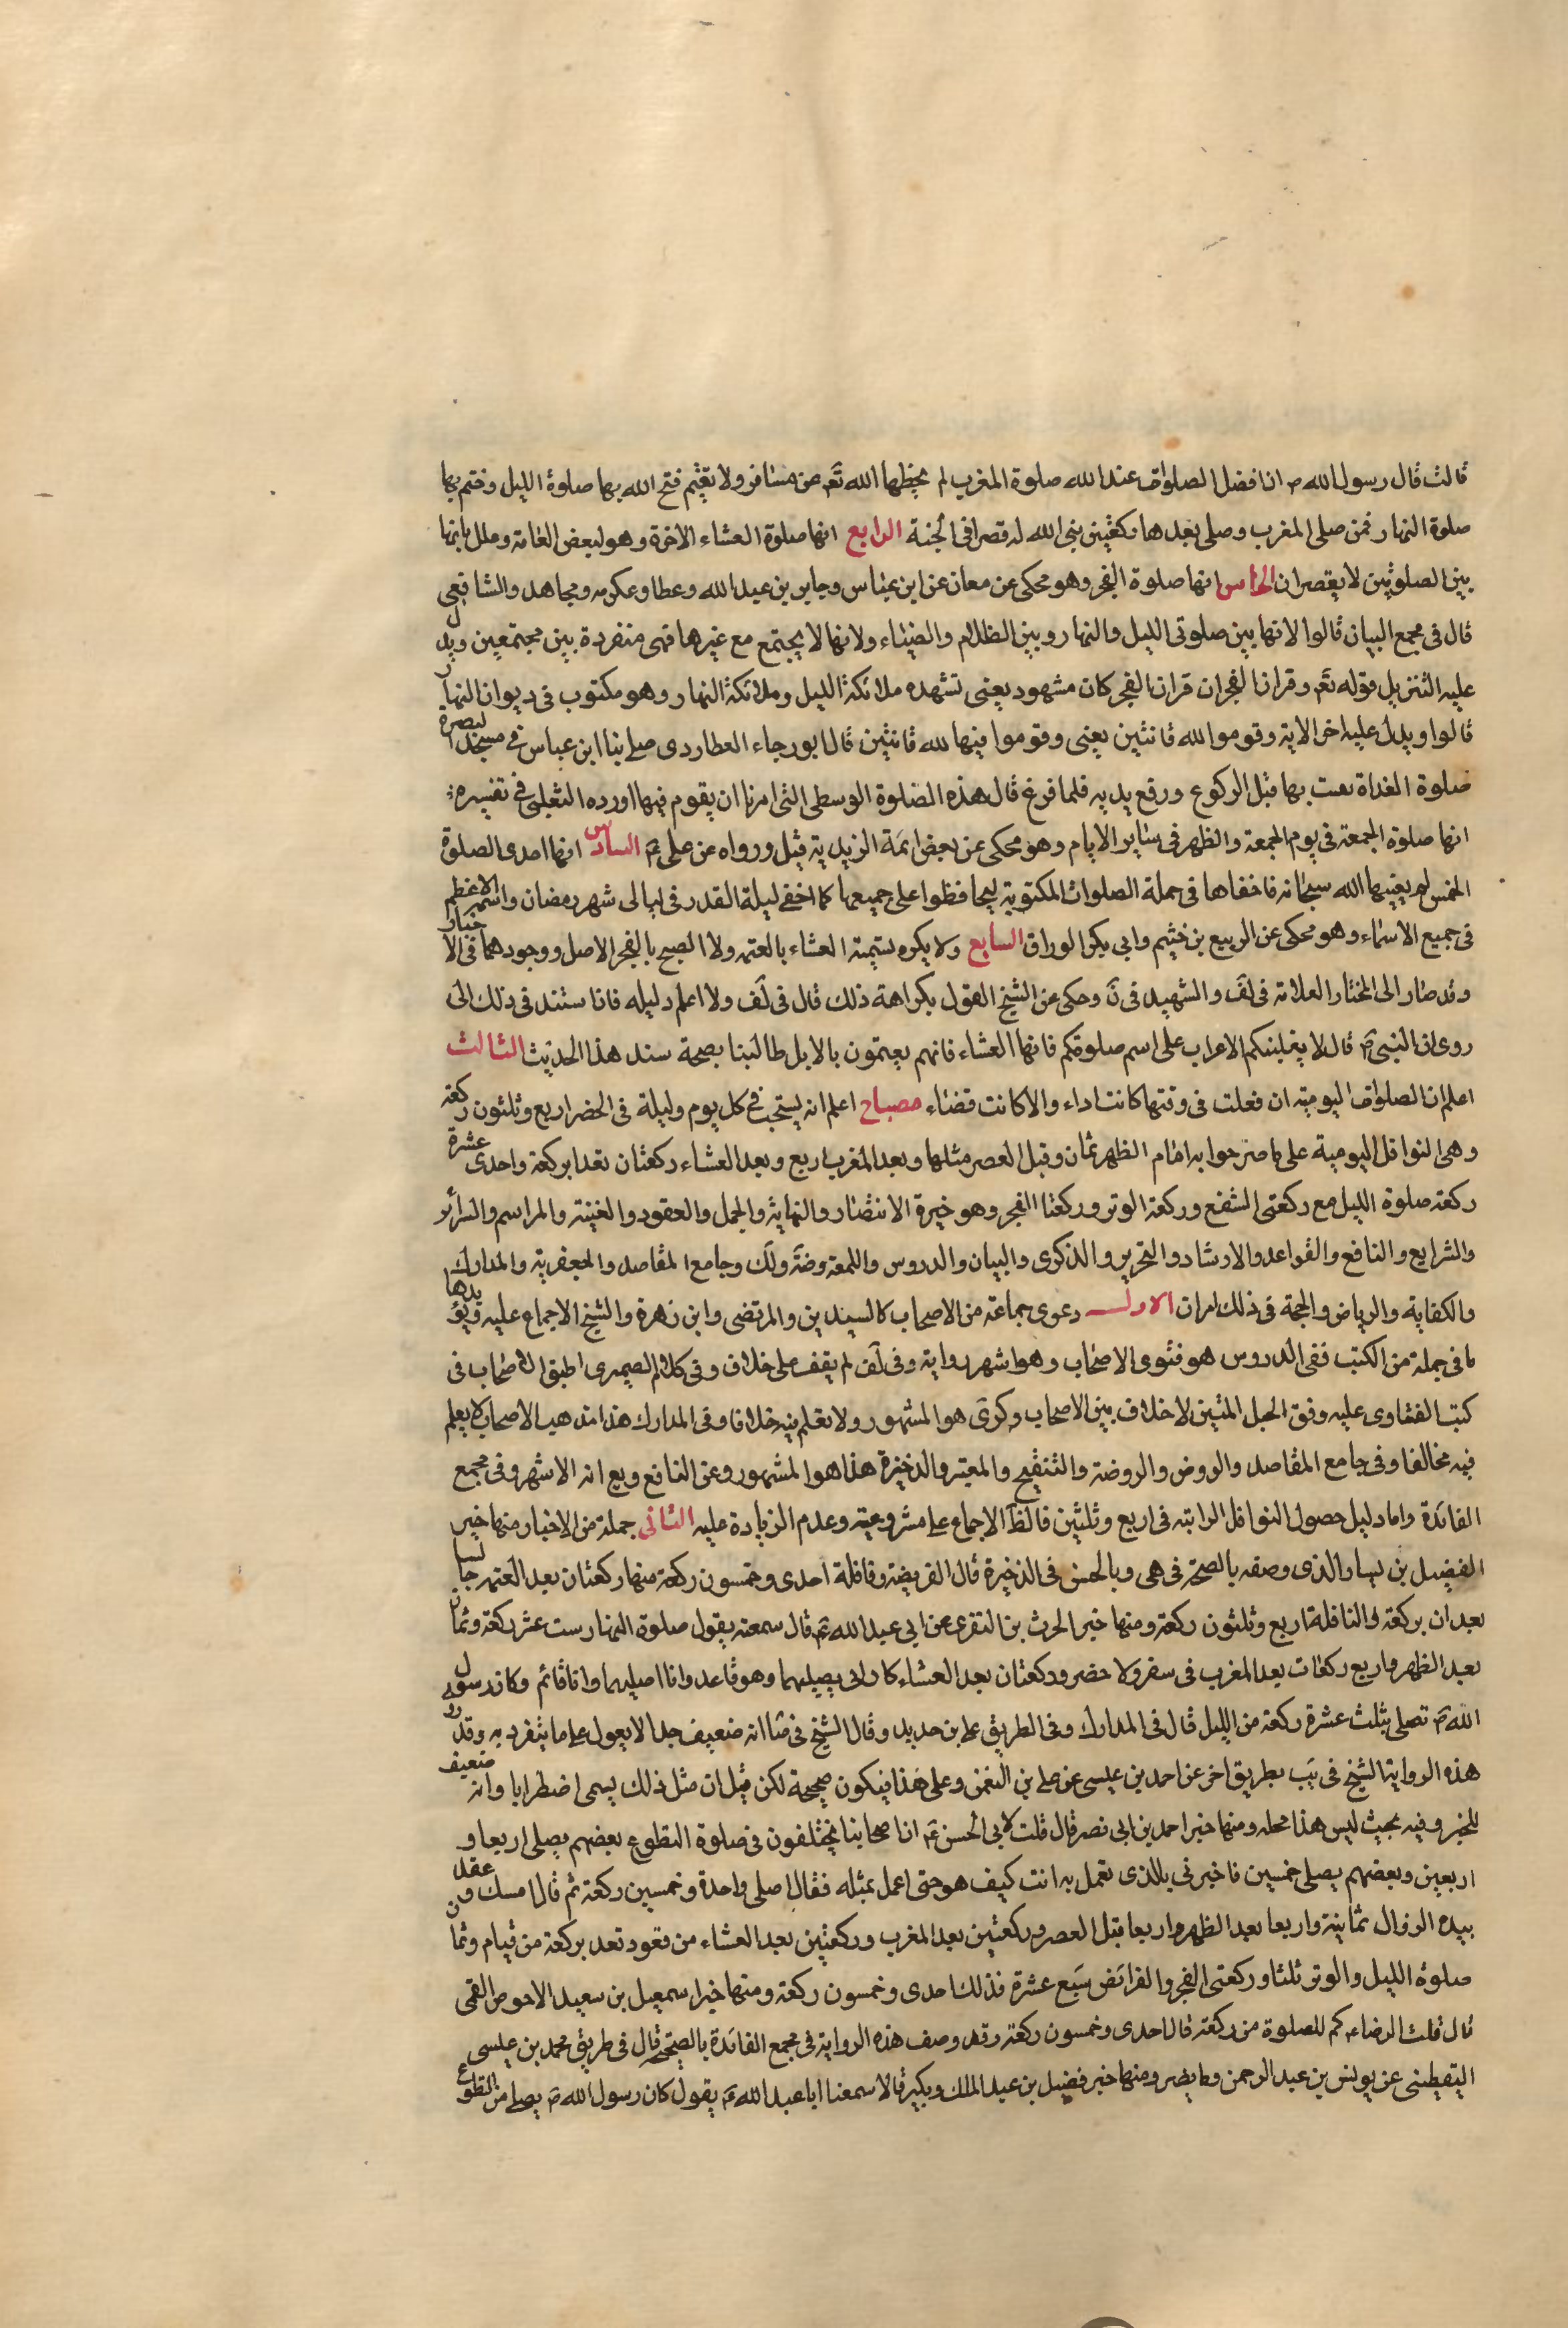 قالت قال رسول الله ص ان افضل الصلوات عند الله صلوة المغرب لم يحطها الله تعم عن مسافر ولا مقيم فتح الله بها صلوة الليل وختم بها
صلوة النهار فمن صلى المغرب وصلى بعدها ركعتين بنى الله له قصرا فى الجنة الرابع انها صلوة العشاء الاخرة وهو لبعض العامة وعلل بانها
بين الصلوتين لا يقصران الخامس انها صلوة الفجر وهو محكى عن معاذ عن ابن عباس وجابر بن عبد الله وعطا وعكرمه ومجاهد والشافعى
قال فى مجمع البيان قالوا لانها بين صلوتى الليل والنهار وبين الظلام والضياء ولانها لا يجتمع مع غيرها فهى منفردة بين مجتمعين ويدل
عليه التنزيل قوله تعم وقران الفجر ان قران الفجر كان مشهود يعنى تشهده ملائكة الليل وملائكة النهار وهو مكتوب فى ديوان النهار
قالوا ويدل عليه اخر الاية وقوموا لله قانتين يعنى وقوموا فيها لله قانتين قال ابو رجاء العطاردى صلى بنا ابن عباس فى مسجد البصرة
صلوة الغداة فقنت بها قبل الركوع ورفع يديه فلما فرغ قال هذه الصلوة الوسطى التى امرنا ان يقوم فيها اورده الثعلبى فى تفسيره
انها صلوة الجمعة فى يوم الجمعة والظهر فى ساير الايام وهو محكى عن بعض ائمة الزيدية قيل ورواه عن على ع السادس انها احدى الصلوة
الخمس لم يعينها الله سبحانه فاخفاها فى جملة الصلوات المكتوبة ليحافظوا على جميعها كما اخفى ليلة القدر فى ليالى شهر رمضان واسمه الاعظم
فى جميع الاسماء وهو محكى عن الربيع بن خثيم وابى بكر الوراق السابع ولا يكره تسمية العشاء بالعتمه ولا الصبح بالفجر الاصل ووجودهما فى الاخبار
وقد صار الى المختار العلامة فى لف والشهيد فى ن وحكى عن الشيخ القول بكراهة ذلك قال فى لف ولا اعلم دليله فان استند فى ذلك الى
روى ان النبى ص قال لا يغلبنكم الاعراب على اسم صلوتكم فانها العشاء فانهم يعتمون بالابل طالبنا بصحة سند هذا الحديث الثالث
اعلم ان الصلوات اليومية ان فعلت فى وقتها كانت اداء والا كانت قضاء مصباح اعلم انه يستحب فى كل يوم وليلة فى الحضر اربع وثلثون ركعة
وهى النوافل اليومية على ما صرحوا به امام الظهر ثمان وقبل العصر مثلها وبعد المغرب اربع وبعد العشاء ركعتان تعدا بركعة واحدى عشرة
ركعة صلوة الليل مع ركعتى الشفع وركعة الوتر وركعتا الفجر وهو خيرة الانتصار والنهاية والجمل والعقود والغنية والمراسم والسرائر
والشرايع والنافع والقواعد والارشاد والتحرير والذكرى والبيان والدروس واللمعة وضة ولك وجامع المقاصد والجعفرية والمدارك
والكفاية والرياض والحجة فى ذلك امران الاول دعوى جماعة من الاصحاب كالسيدين والمرتضى وابن زهرة والشيخ الاجماع عليه ويؤيدها
ما فى جملة من الكتب ففى الدروس هو فتوى الاصحاب وهو اشهر رواية وفى لف لم يقف على خلاف وفى كلام الصيمرى اطبق الاصحاب فى
كتب الفتاوى عليه وفق الحبل المتين لا خلاف بين الاصحاب وكرى هو المشهور ولا نعلم فيه خلافا وفى المدارك هذا مذهب الاصحاب لا يعلم
فيه مخالفا وفى جامع المقاصد والروض والروضة والتنقيح والمعتبر والذخيرة هذا هو المشهور وعن النافع ويع انه الاشهر وفى مجمع
الفائدة واما دليل حصول النوافل الراتبه فى اربع وثلثين فالظ الاجماع على مشروعيته وعدم الزيادة عليه الثانى جملة من الاخبار منها خبر
الفضيل بن يسار والذى وصفه بالصحة فى هى وبالحسن فى الذخيرة قال الفريضة وفافلة احدى وخمسون ركعة منها ركعتان بعد العتمه جالسا
تعدان بركعة والنافلة اربع وثلثون ركعة ومنها خبر الحرث بن النقرى عن ابى عبد الله ع قال سمعته يقول صلوة النهار ست عشر ركعة وثمان
بعد الظهر واربع ركعات بعد المغرب فى سفر ولا حضر وركعتان بعد العشاء كان ابى يصليهما وهو قاعد وانا اصليهما وانا قائم وكان رسول
الله ص تصلى ثلث عشرة ركعة من الليل قال فى المدارك وفى الطريق على بن حديد وقال الشيخ فى صا انه ضعيف جدا لا يعول على ما يتفرد به وقد رو
هذه الرواية الشيخ فى يب بطريق اخر عن احمد بن عيسى عن على بن النعمن وعلى هذا فيكون صحيحة لكن قيل ان مثل ذلك يسمى اضطرابا وانه ضعيف
للخبر وفيه بحيث ليس هذا محله ومنها خبر احمد بن ابى نصر قال قلت لابى الحسن ع ان اصحابنا يختلفون فى صلوة التطوع بعضهم يصلى اربعا و
اربعين وبعضهم يصلى خمسين فاخبرنى بالذى تعمل به انت كيف هو حتى اعمل بمثله فقال اصلى واحدة وخمسين ركعة ثم قال امسك وعقد
بيده الزوال ثمانية واربعا بعد الظهر واربعا قبل العصر وركعتين بعد المغرب وركعتين بعد العشاء من قعود تعد بركعة من قيام وثمان
صلوة الليل والوتر ثلثا وركعتى الفجر والفرائض سبع عشرة فذلك احدى وخمسون ركعة ومنها خبر اسمعيل بن سعيد الاحوص القمى
قال قلت الرضاء كم للصلوة من ركعة قال احدى وخمسون ركعة وقد وصف هذه الرواية فى مجمع الفائدة بالصحة قال فى طريق محمد بن عيسى
اليقطينى عن يونس بن عبد الرحمن وما يضر ومنها خبر فضيل بن عبد الملك وبكير قالا سمعنا ابا عبد الله ع يقول كان رسول الله ص يصلى من التطوع